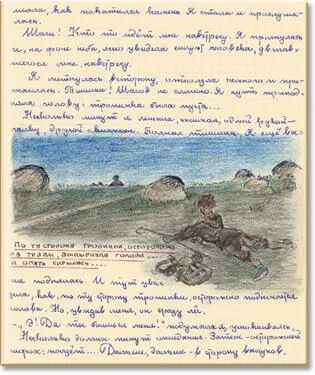 шала, как покатился камень. Я встала и прислуша-
лась.
Шаги! Кто то идёт мне навстречу. Я пригнулась
и, на фоне неба, ясно увидела силуэт человека, двигав-
шегося мне навстречу.
Я метнулась в сторону, отползла немного и при-
таилась. Тишина! Шагов не слышно. Я чуть припод-
няла голову: тропинка была пуста....
Несколько минут я лежала, сжимая, одной рукой-
палку, другой-
Полная тишина. Я ещё вы-
По ту сторону тропинки, осторожно
из травы, вынырнула голова
и опять скрылась....
ше поднялась. И тут уви-
дела, как, по ту сторону тропинки, осторожно поднимается
голова. Но, увидев меня, он сразу лёг.
"Э! Да ты боишься меня!" подумала я успокаиваясь.
Несколько долгих минут ожидания. Затем - осторожный
шорох: ползёт.... Дальше, дальше - в сторону